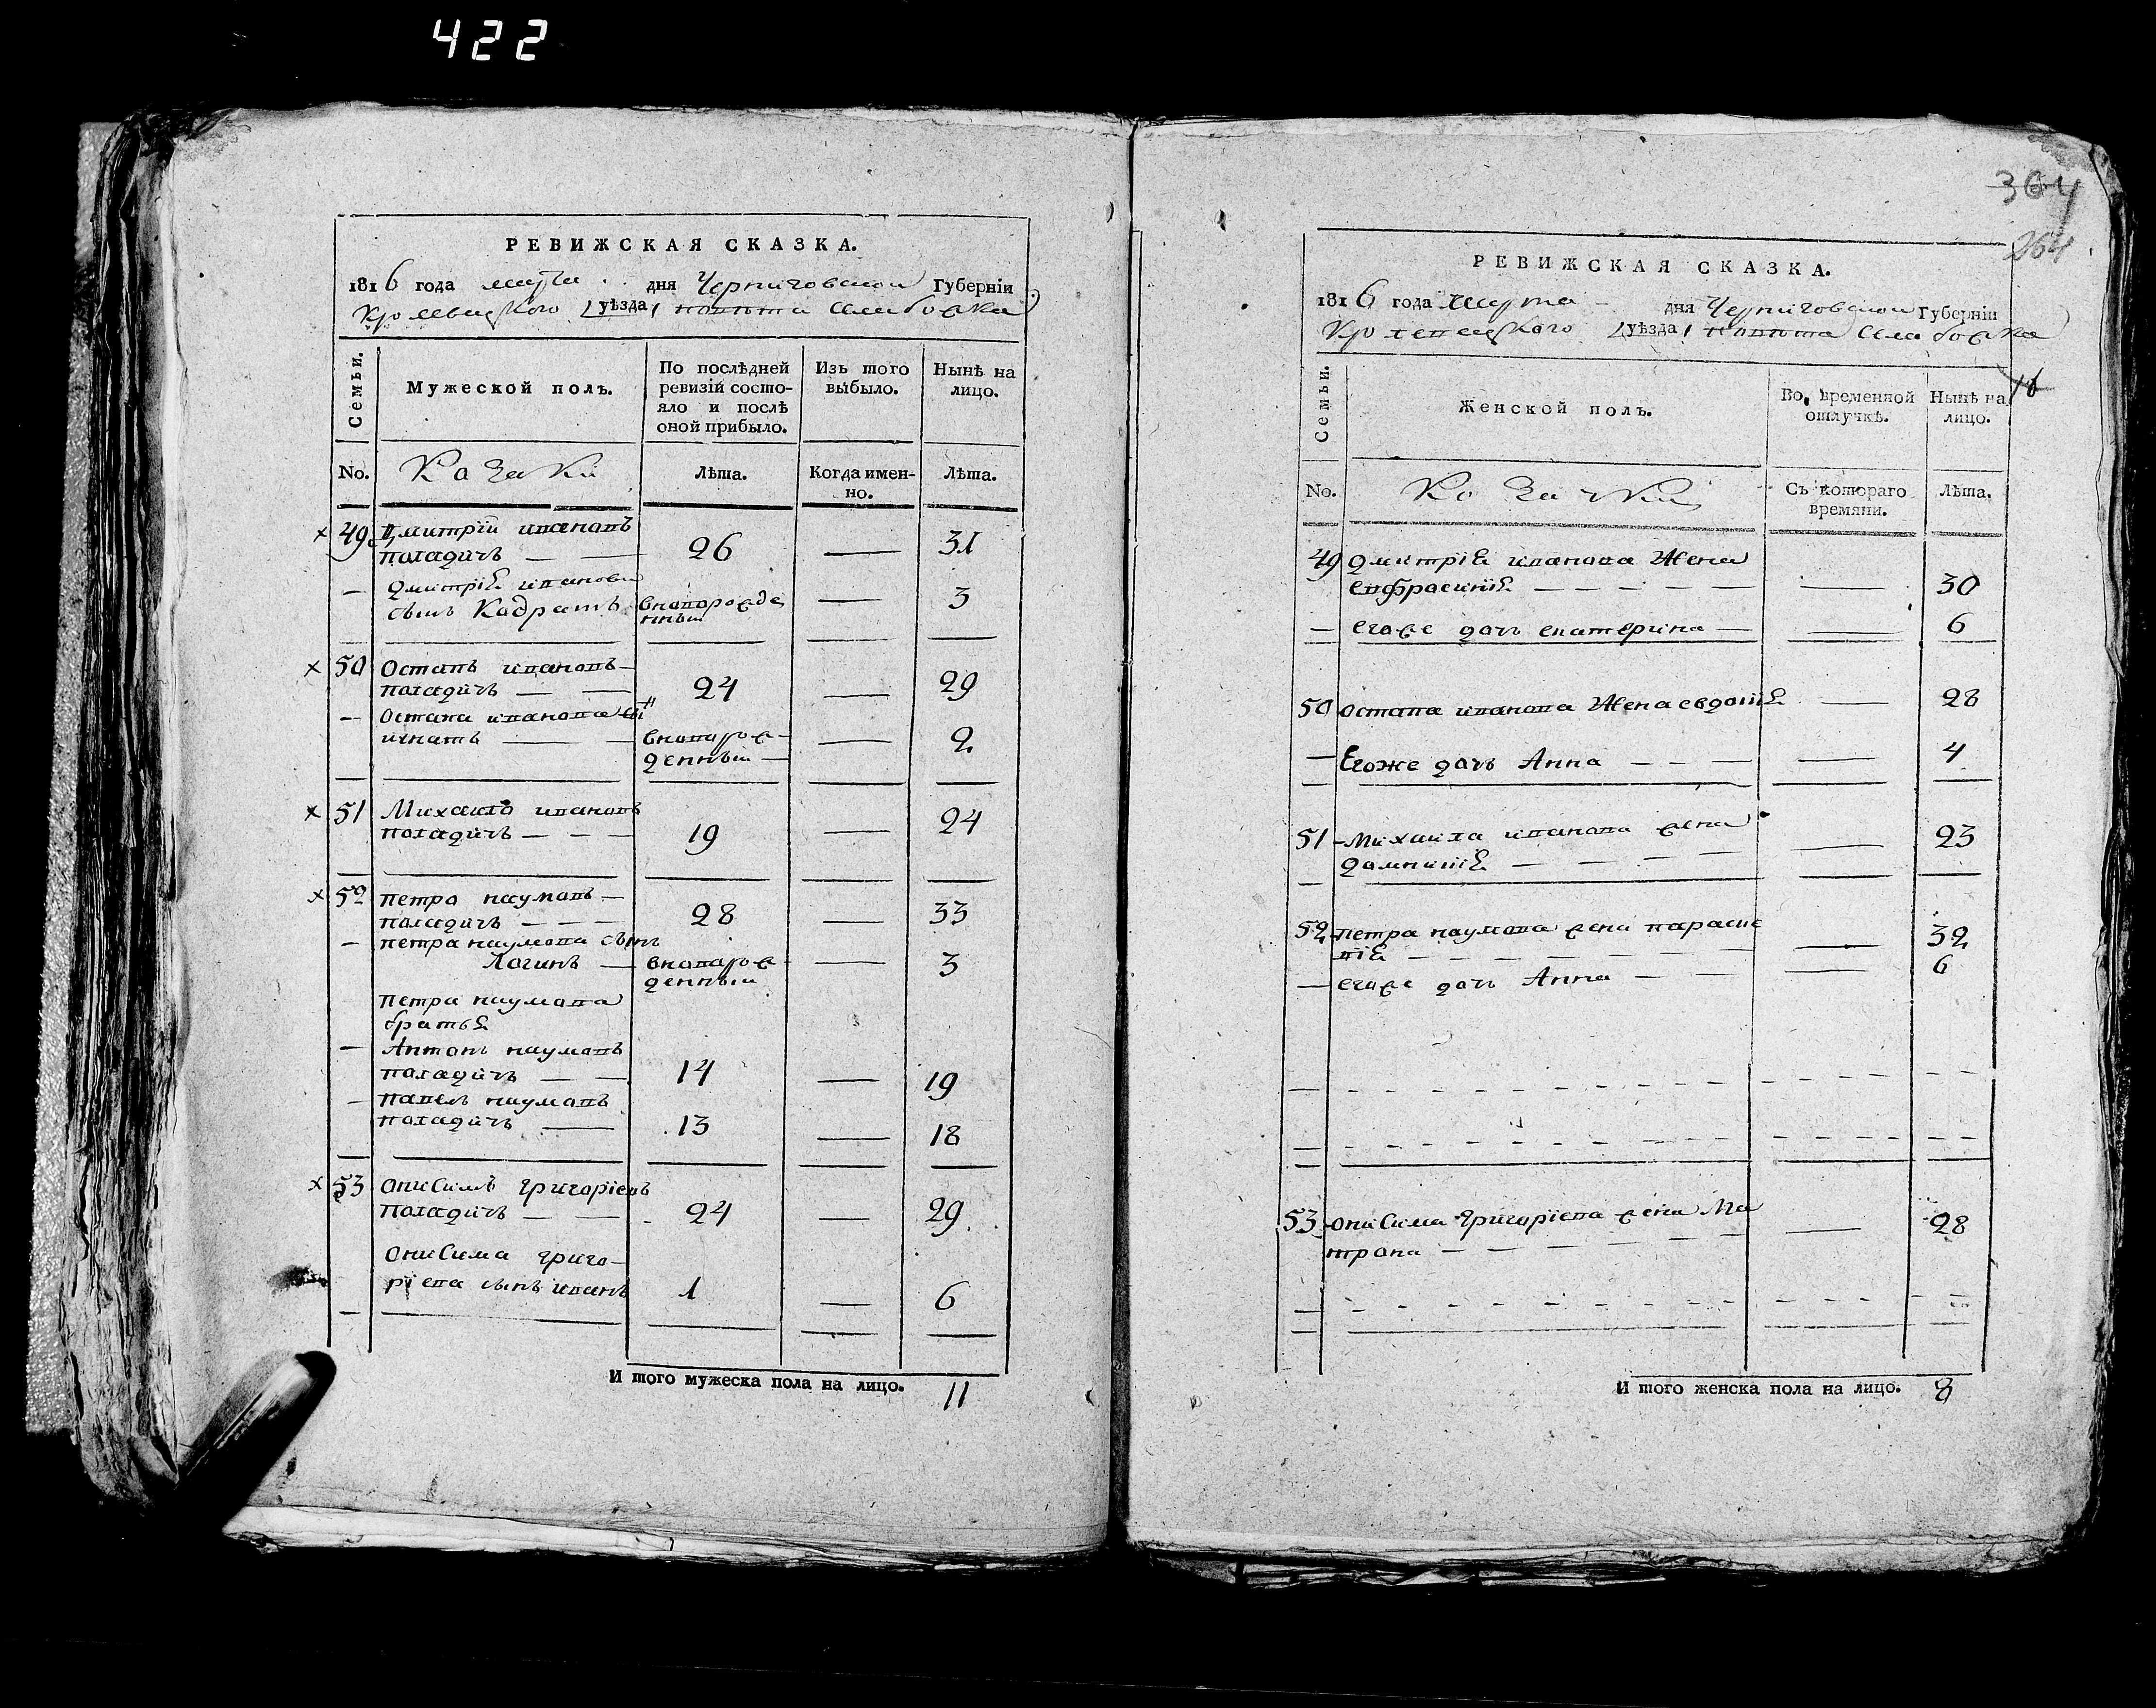 422
РЕВИЖСКАЯ СКАЗКА.
1816 года марта дня Черниговской Губерніи
Кролевецкого уѣзда повѣта Слабодка
Семьи.
Мужеской полъ.
По послѣдней ревизіи состояло и послѣ оной прибыло.
Изъ того выбыло.
Нынѣ на лицо.
No.
Козаки
Лѣта.
Когда именно.
Лѣта.
49 Дмитрій ивановъ
26 — 31
— Дмитріѣ иванова
сынъ Кодратъ вноворожденный — 3
50 Остапъ ивановъ
24 — 29
— Остапа иванова сынъ
игнатъ вноворожденный — 2
51 Михаило ивановъ
19 — 24
52 петро наумовъ
28 — 33
— петра наумова сынъ
Логинъ — вноворожденный — 3
петра наумова
братьѣ
— Антонъ наумовъ
14 — 19
— павелъ наумовъ
13 — 18
53 онисимъ григоріевъ
24 — 29
онисима григо-
ріева сынъ иванъ 1 — 6
И того мужеска пола на лицо. 11
364
264
РЕВИЖСКАЯ СКАЗКА.
1816 года марта дня Черниговской Губерніи
Кролевецкого уѣзда повѣта Слабодка
Семьи.
Женской полъ.
Во временной отлучкѣ.
Нынѣ на лицо.
No.
Козачки
Съ котораго времяни.
Лѣта.
49 Дмитріѣ иванова Жена
евфросиніѣ — 30
— егоже дочь екатерина — 6
50 остапа иванова Жена евдокіѣ — 28
— Егоже дочь Анна — 4
51 Михаила иванова жена
домникіѣ — 23
52 петра наумова жена параске
віѣ — 32
— егоже дочь Анна — 6
53 онисима григоріева жена Ма
трона — 28
И того женска пола на лицо. 8